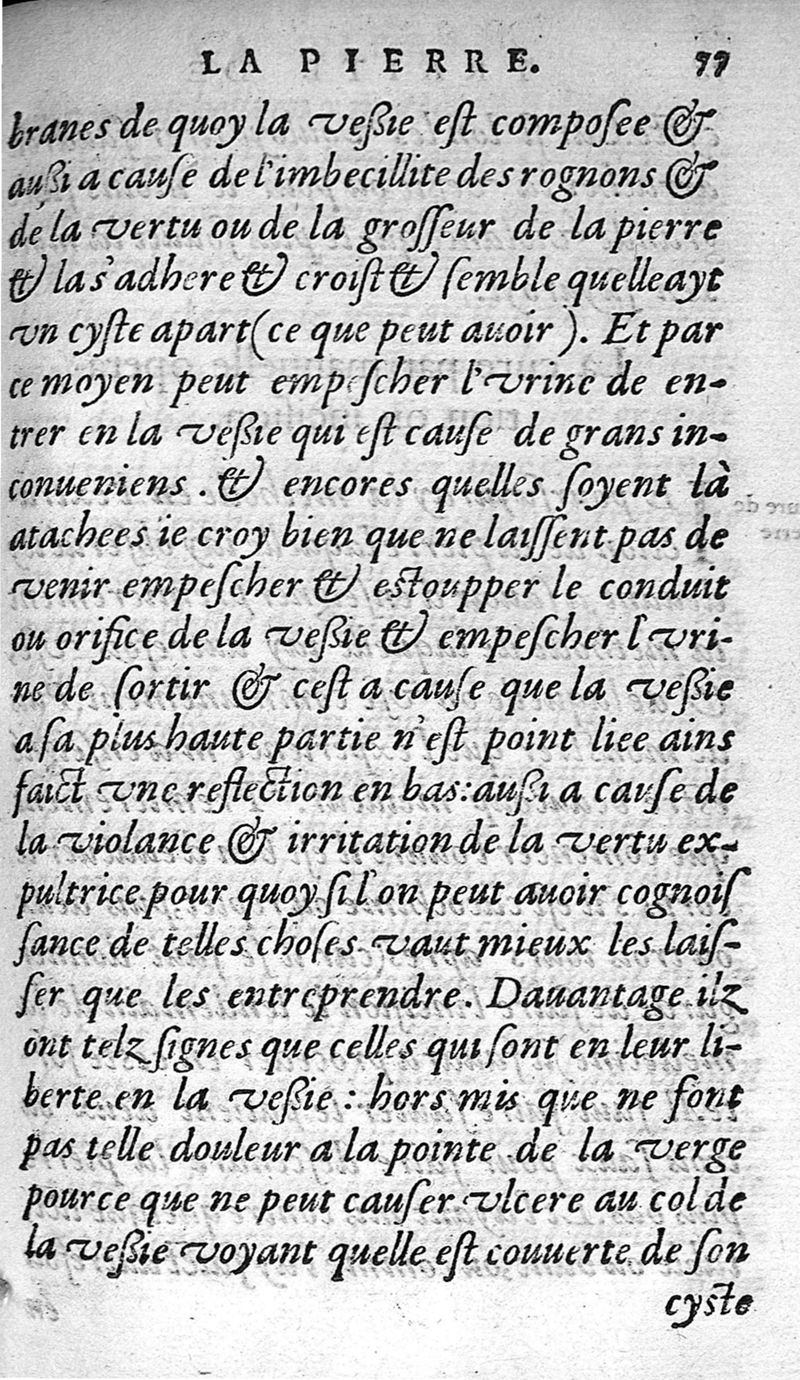 LA PIERRE. 77
branes de quoy la veßie est composee &
außi a cause de l'imbecillite des rognons &
de la vertu ou de la grosseur de la pierre
& la s'adhere & croist & semble quelle ayt
vn cyste apart (ce que peut auoir). Et par
ce moyen peut empescher l'vrine de en-
trer en la veßie qui est cause de grans in-
conueniens. & encores quelles soyent là
atachees ie croy bien que ne laissent pas de
venir empescher & estoupper le conduit
ou orifice de la veßie & empescher l'vri-
ne de sortir & cest a cause que la veßie
a sa plus haute partie n'est point liee ains
faict vne reflection en bas: außi a cause de
la violance & irritation de la vertu ex-
pultrice pour quoy si l'on peut auoir cognois
sance de telles choses vaut mieux les lais-
ser que les entreprendre. Dauantage ilz
ont telz signes que celles qui sont en leur li-
berte en la veßie: hors mis que ne font
pas telle douleur a la pointe de la verge
pource que ne peut causer vlcere au col de
la veßie voyant quelle est couuerte de son
cyste